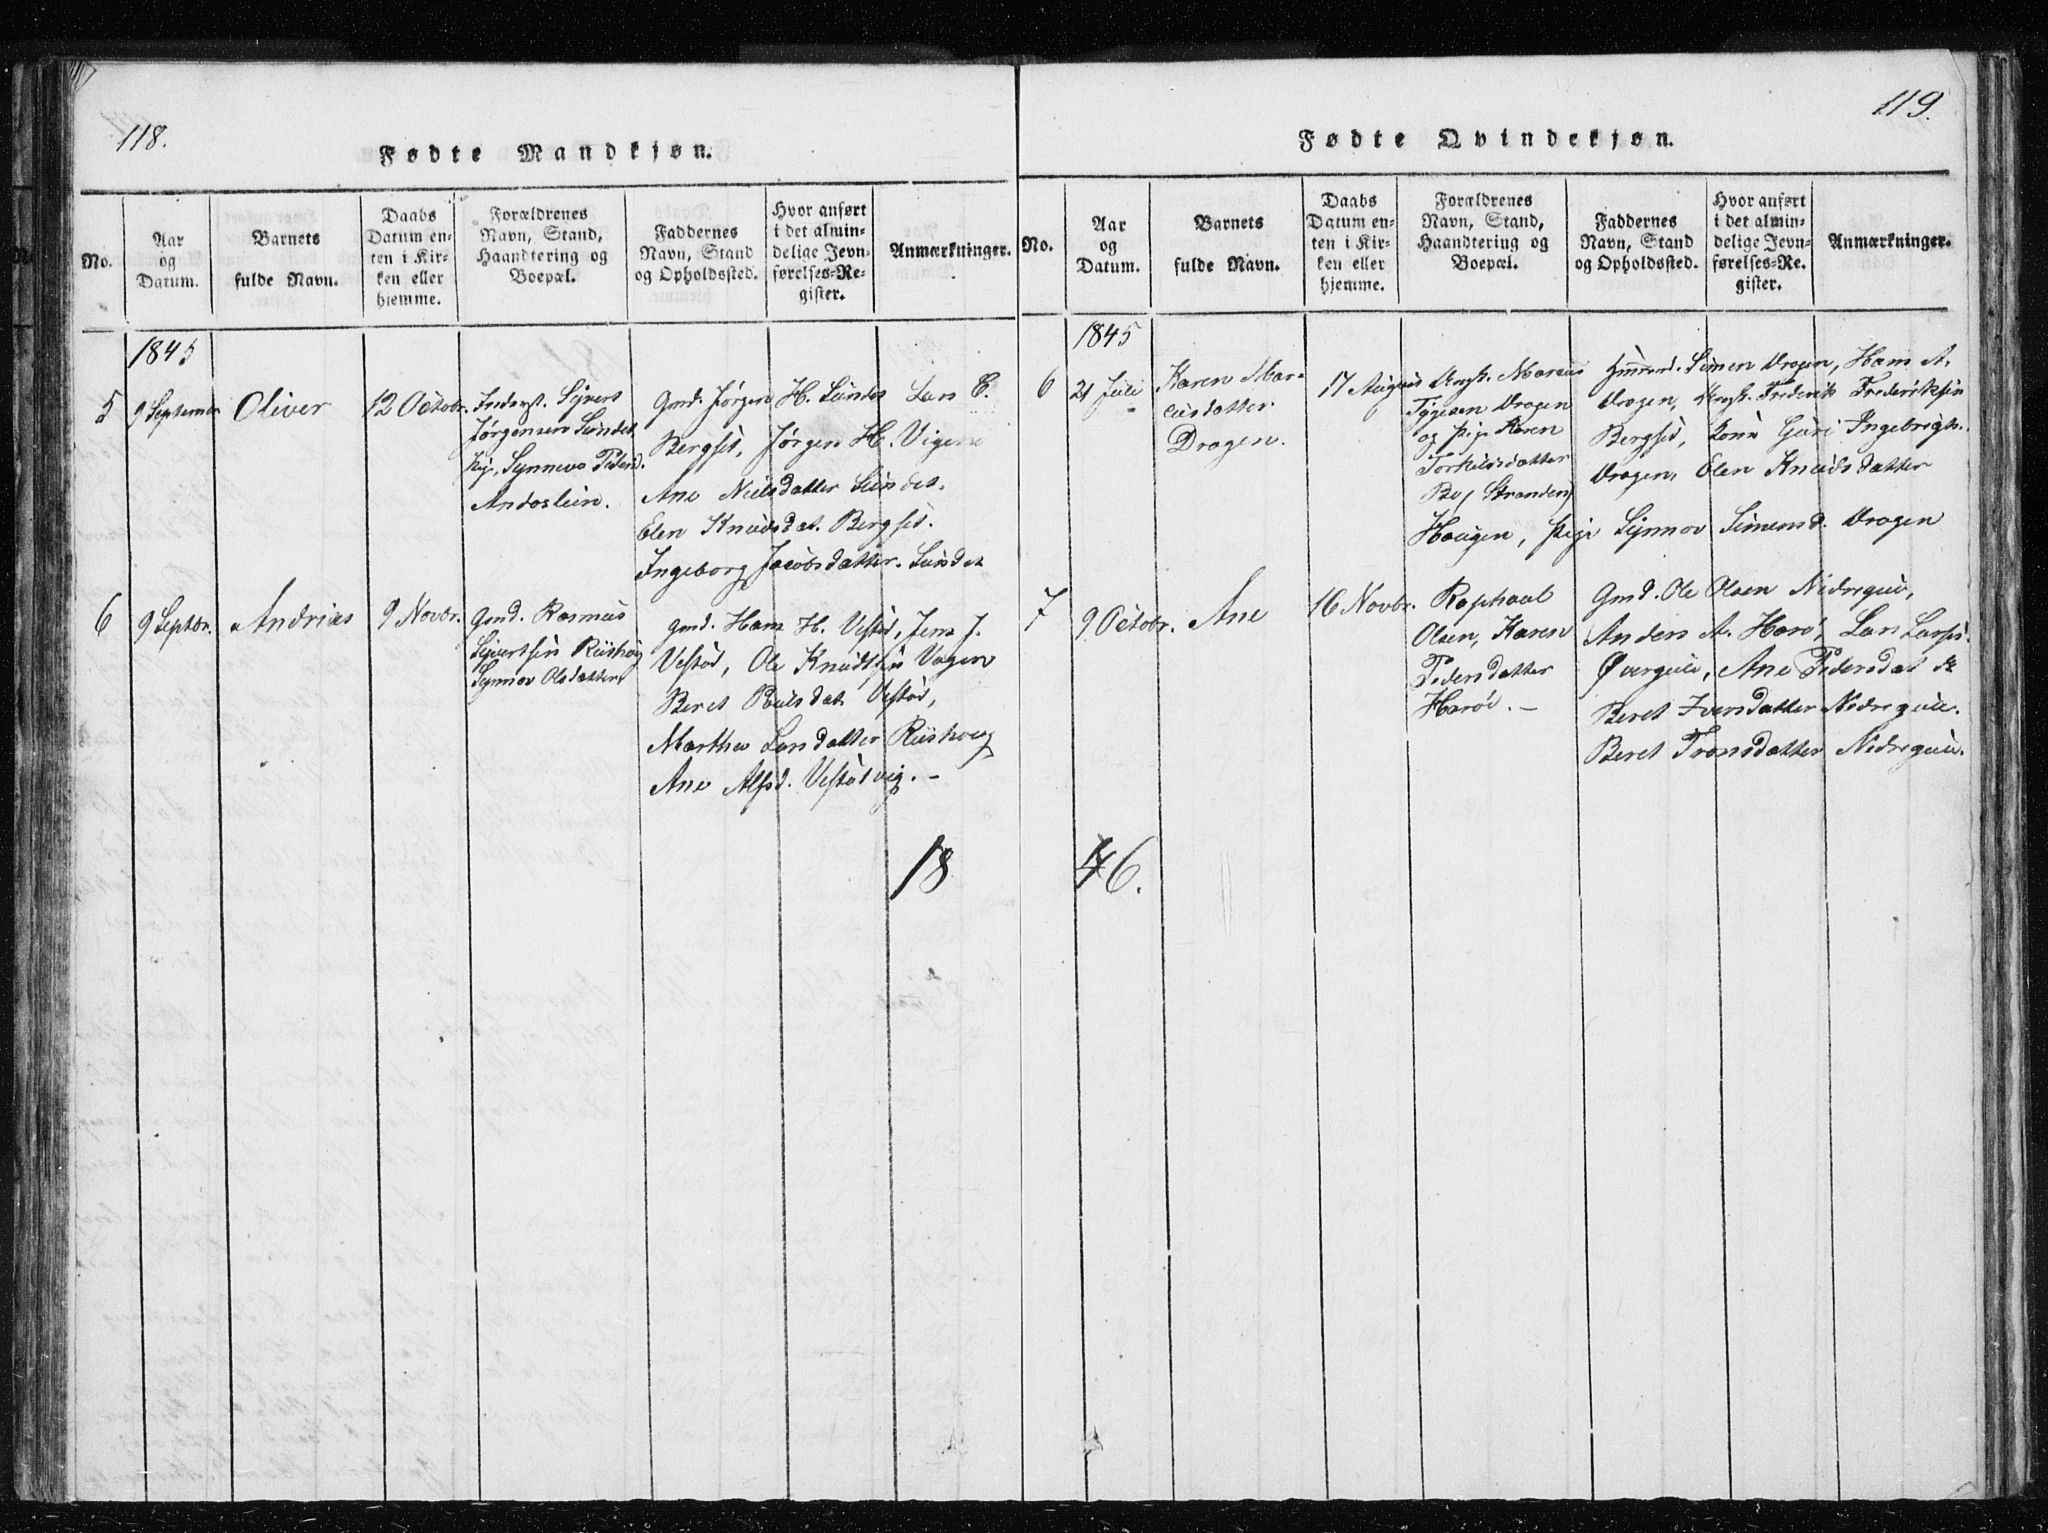 118.
Fødte Mandkjøn.
No.
Aar
og
Datum.
Barnets
fulde Navn.
Daabs
Datum en-
ten i Kir-
ken eller
hjemme.
Forældrenes
Navn, Stand,
Haandtering og
Boepæl.
Faddernes
Navn, Stand
og Opholdssted.
Hvor anført
i det almin-
delige Jevn-
førelses-Re-
gister.
Anmærkninger.
1845
5
9 September
Oliver
12 Octobr.
Sivert
Jørgensen Sundet
Pig. Synneva Peders.
Gmd. Jørgen H. Sundet Lars C.
Bergset, Jørgen H. Vigen
Ane Nielsdatter Sundet.
Elen Knudsdat. Bergset.
Ingeborg Jacobsdatter. Sundet
6
9 Septbr.
Andrias
9 Novbr.
Gmd. Rasmus
Sivertsen Riishoug
Synnov Olsdatter
gmd. Hans H. Vestød, Jens J.
Vestød, Ole Knudssen Vagen
Beret Poulsdat. Vestød,
Marthe Larsdatter Riishoug
Ane Alfsd. Vestødvig. –
18
119.
Fødte Qvindekjøn.
No.
Aar
og
Datum.
Barnets
fulde Navn.
Daabs
Datum en-
ten i Kir-
ken eller
hjemme.
Forældrenes
Navn, Stand,
Haandtering og
Boepæl.
Faddernes
Navn, Stand
og Opholdssted.
Hvor anført
i det almin-
delige Jevn-
førelses-Re-
gister.
Anmærkninger.
1845
6
21 Juli
Karen Mar-
cusdatter
Dragen.
17 August
Ungk. Marcus
Dragen
og Pige Karen
Torkilsdatter
Bo/ Stranden)
Haugen, Pige Synnov Simensd. Dragen
Simen Dragen, Hans A.
Dragen, Ungk. Frederik Frederikssen
Bergset, Kone Guri Ingebrigts.
Dragen, Elen Knudsdatter
7
9 Octobr.
Ane
16 Novbr.
Raphael
Olsen, Karen
Pedersdatter
Harøe. –
Gmd. Ole Olsen Nedregui,
Anders A. Harø, Lars Larss.
Øvergui, Ane Pedersdat
Beret Iversdatter Nedregui.
Beret Tronsdatter Nedregui.
46.